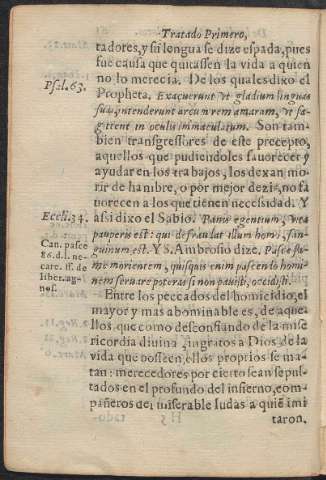 Tratado Primero,
tadores, y su lengua se dize espada, pues
fue causa que quitassen la vida a quien
no lo merecia. De los quales dixo el
Psal. 63.
Propheta. Exacuerunt vt gladium linguas
suas, intenderunt arcū rem amaram, vt sa-
gittent in oculis immaculatum. Son tam-
bien transgressores de este precepto,
aquellos que pudiendoles fauorecer y
ayudar en los trabajos, los dexan mo-
rir de hambre, o por mejor dezir, no fa
uorecen a los que tienen necesidad. Y
Eccli. 34.
assi dixo el Sabio. Panis egentium, vita
pauperis est: qui defraudat illum homo san-
Can. pasce
86. d. l. ne-
care. ff. de
liber. ag-
nos.
guinum est. Y S. Ambrosio dize. Pasce fa-
me morientem, quisquis enim pascendo homi-
nem seruare poteras si non pauisti, occidisti.
Entre los peccados del homicidio, el
mayor y mas abominable es, de aque-
llos, que como desconfiando de la mise
ricordia diuina, ingratos a Dios de la
vida que posseen, ellos proprios se ma-
tan: merecedores por cierto sean sepul-
tados en el profundo del infierno, com-
pañeros del miserable Iudas a quiē imi
taron.